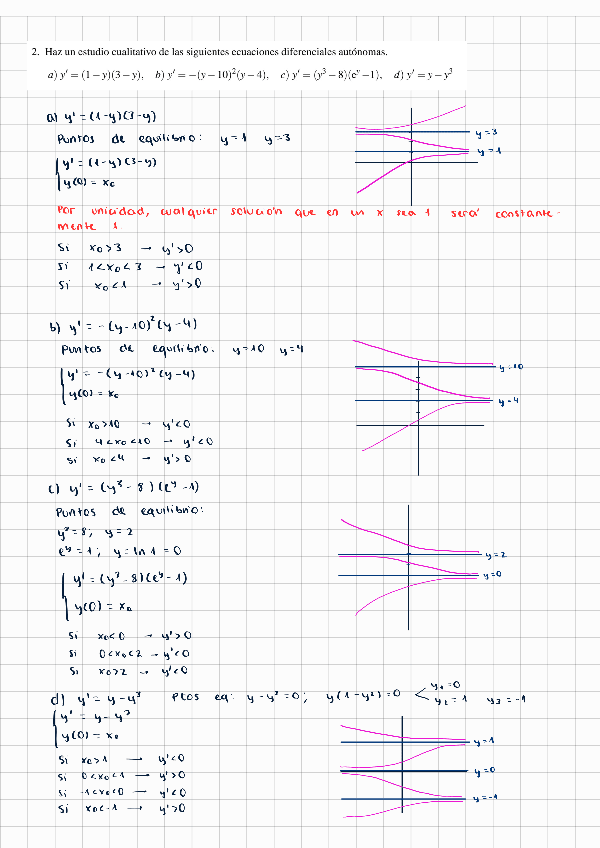 2. Haz un estudio cualitativo de las siguientes ecuaciones diferenciales autónomas.
a) y′ = (1−y)(3−y), b) y′ = −(y−10)²(y−4), c) y′ = (y³−8)(eʸ−1), d) y′ = y−y³
a) y' = (1-y)(3-y)
Puntos de equilibrio: y=1 y=3
y' = (1-y)(3-y)
y(0) = x₀
y=3
y=1
Por unicidad, cualquier solución que en un x sea 1 será constante-
mente 1
Si x₀>3 → y'>0
Si 1<x₀<3 → y'<0
Si x₀<1 → y'>0
b) y' = -(y-10)²(y-4)
Puntos de equilibrio. y=10 y=4
y' = -(y-10)²(y-4)
y(0) = x₀
y=10
y=4
Si x₀>10 → y'<0
Si 4<x₀<10 → y'<0
Si x₀<4 → y'>0
c) y' = (y³-8)(eʸ-1)
Puntos de equilibrio:
y³=8; y=2
eʸ=1; y=ln 1=0
y' = (y³-8)(eʸ-1)
y(0) = x₀
y=2
y=0
Si x₀<0 → y'>0
Si 0<x₀<2 → y'<0
Si x₀>2 → y'<0
d) y' = y-y³ Ptos eq: y-y³=0; y(1-y²)=0 y₁=0
y₂=1 y₃=-1
y' = y-y³
y(0) = x₀
y=1
y=0
y=-1
Si x₀>1 → y'<0
Si 0<x₀<1 → y'>0
Si -1<x₀<0 → y'<0
Si x₀<-1 → y'>0